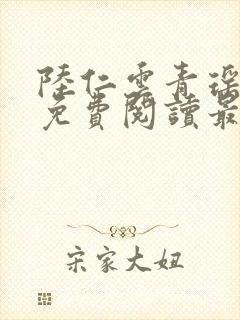 陸仁雲青瑤
免費閱讀最
宋家大妞